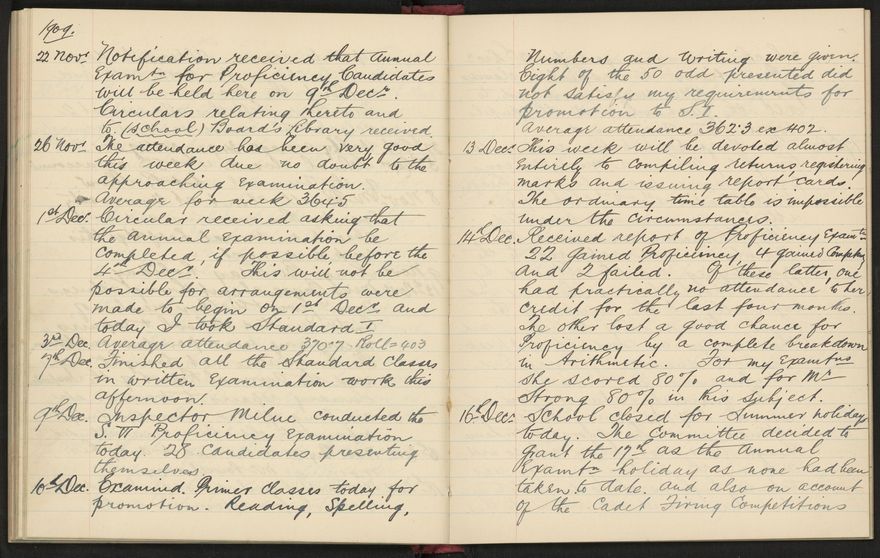 1909.
22 Novr Notification received that annual
Examtn for Proficiency Candidates
will be held here on 9th Decr.
Circulars relating hereto and
to (School) Board's Library received
26 Novr The attendance has been very good
this week due no doubt to the
approaching Examination.
Average for week 364.5
1st Decr. Circular received asking that
the annual Examination be
completed, if possible, before the
4th Decr. This will not be
possible for arrangements were
made to begin on 1st Decr and
today I took Standard I
3rd Dec. Average attendance 370.7 Roll=403
7th Dec. Finished all the Standard Classes
in written Examination work this
afternoon.
9th Dec. Inspector Milne conducted the
S. VI Proficiency Examination
today. 28 Candidates presenting
themselves
10th Dec. Examined Primer Classes today for
promotion. Reading, Spelling,
Numbers and Writing were given.
Eight of the 50 odd presented did
not satisfy my requirements for
promotion to S.I.
Average attendance 362.3 ex 402.
13 Decr This week will be devoted almost
Entirely to compiling returns, registering
marks and issuing report cards.
The ordinary time table is impossible
under the circumstances.
14th Dec. Received report of Proficiency Examtn
22 gained Proficiency, 4 gained
and 2 failed. Of these latter, one
had practically no attendance to her
credit for the last four months.
The other lost a good chance for
Proficiency by a complete breakdown
in Arithmetic. For my Examtns
she scored 80% and for Mr
Strong 80% in his subject.
16th Decr School closed for Summer holidays
today. The Committee decided to
grant the 17th as the Annual
Examtn holiday as none had been
taken to date. and also on account
of the Cadet Firing Competitions